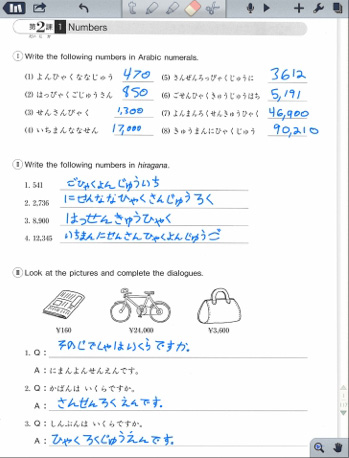 第2課 1 Numbers
I Write the following numbers in Arabic numerals.
(1) よんひゃくななじゅう 470 (5) さんぜんろっぴゃくじゅうに 3612
(2) はっぴゃくごじゅうさん 850 (6) ごせんひゃくきゅうじゅうはち 5,191
(3) せんさんびゃく 1,300 (7) よんまんろくせんきゅうひゃく 46,900
(4) いちまんななせん 17,000 (8) きゅうまんにひゃくじゅう 90,210
II Write the following numbers in hiragana.
1. 541 ごひゃくよんじゅういち
2. 2,736 にせんななひゃくさんじゅうろく
3. 8,900 はっせんきゅうひゃく
4. 12,345 いちまんにせんさんひゃくよんじゅうご
III Look at the pictures and complete the dialogues.
¥160 ¥24,000 ¥3,600
1. Q: そのじてしゃはいくらですか。
A: にまんよんせんえんです。
2. Q: かばんは いくらですか。
A: さんぜんろくえんです。
3. Q: しんぶんは いくらですか。
A: ひゃくろくじゅうえんです。